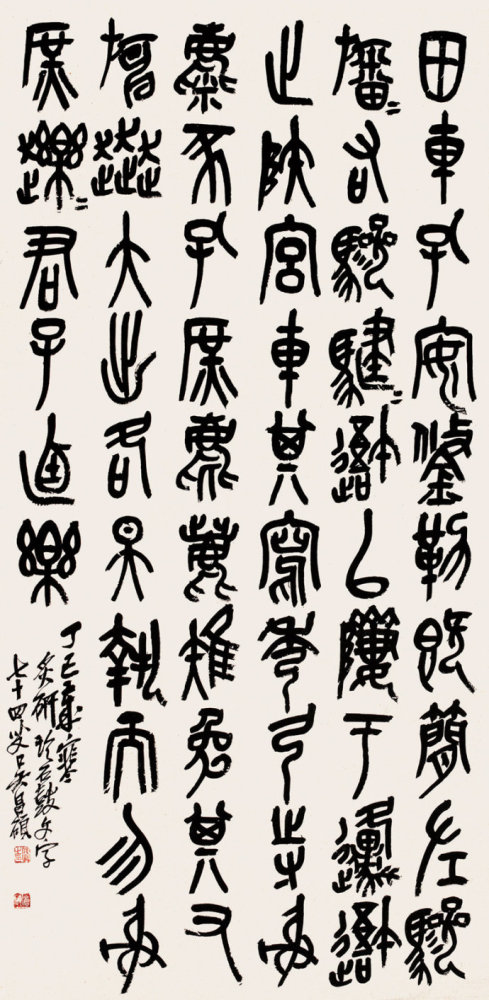 田車孔安鋚勒既簡左驂
旛=右驂騝=吾以隮于邍吾
止陝宮車其寫秀弓寺射
麋豕孔庶麀鹿雉兔其又
奔大出各昊執而勿射
庶趯=君子逌樂
丁巳歲寒
炙研臨石鼓文字
七十四叟吳昌碩